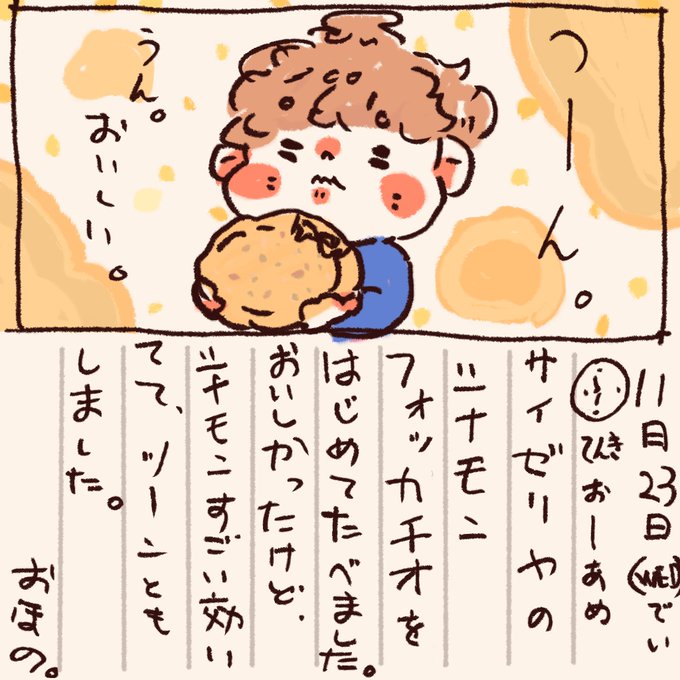 つーん。
うん。
おいしい。
11月23日(WED)でい
てんき おーあめ
サイゼリヤの
シナモン
フォッカチオを
はじめてたべました。
おいしかったけど、
シナモンすごい効い
てて、ツーンとも
しました。
おほの。